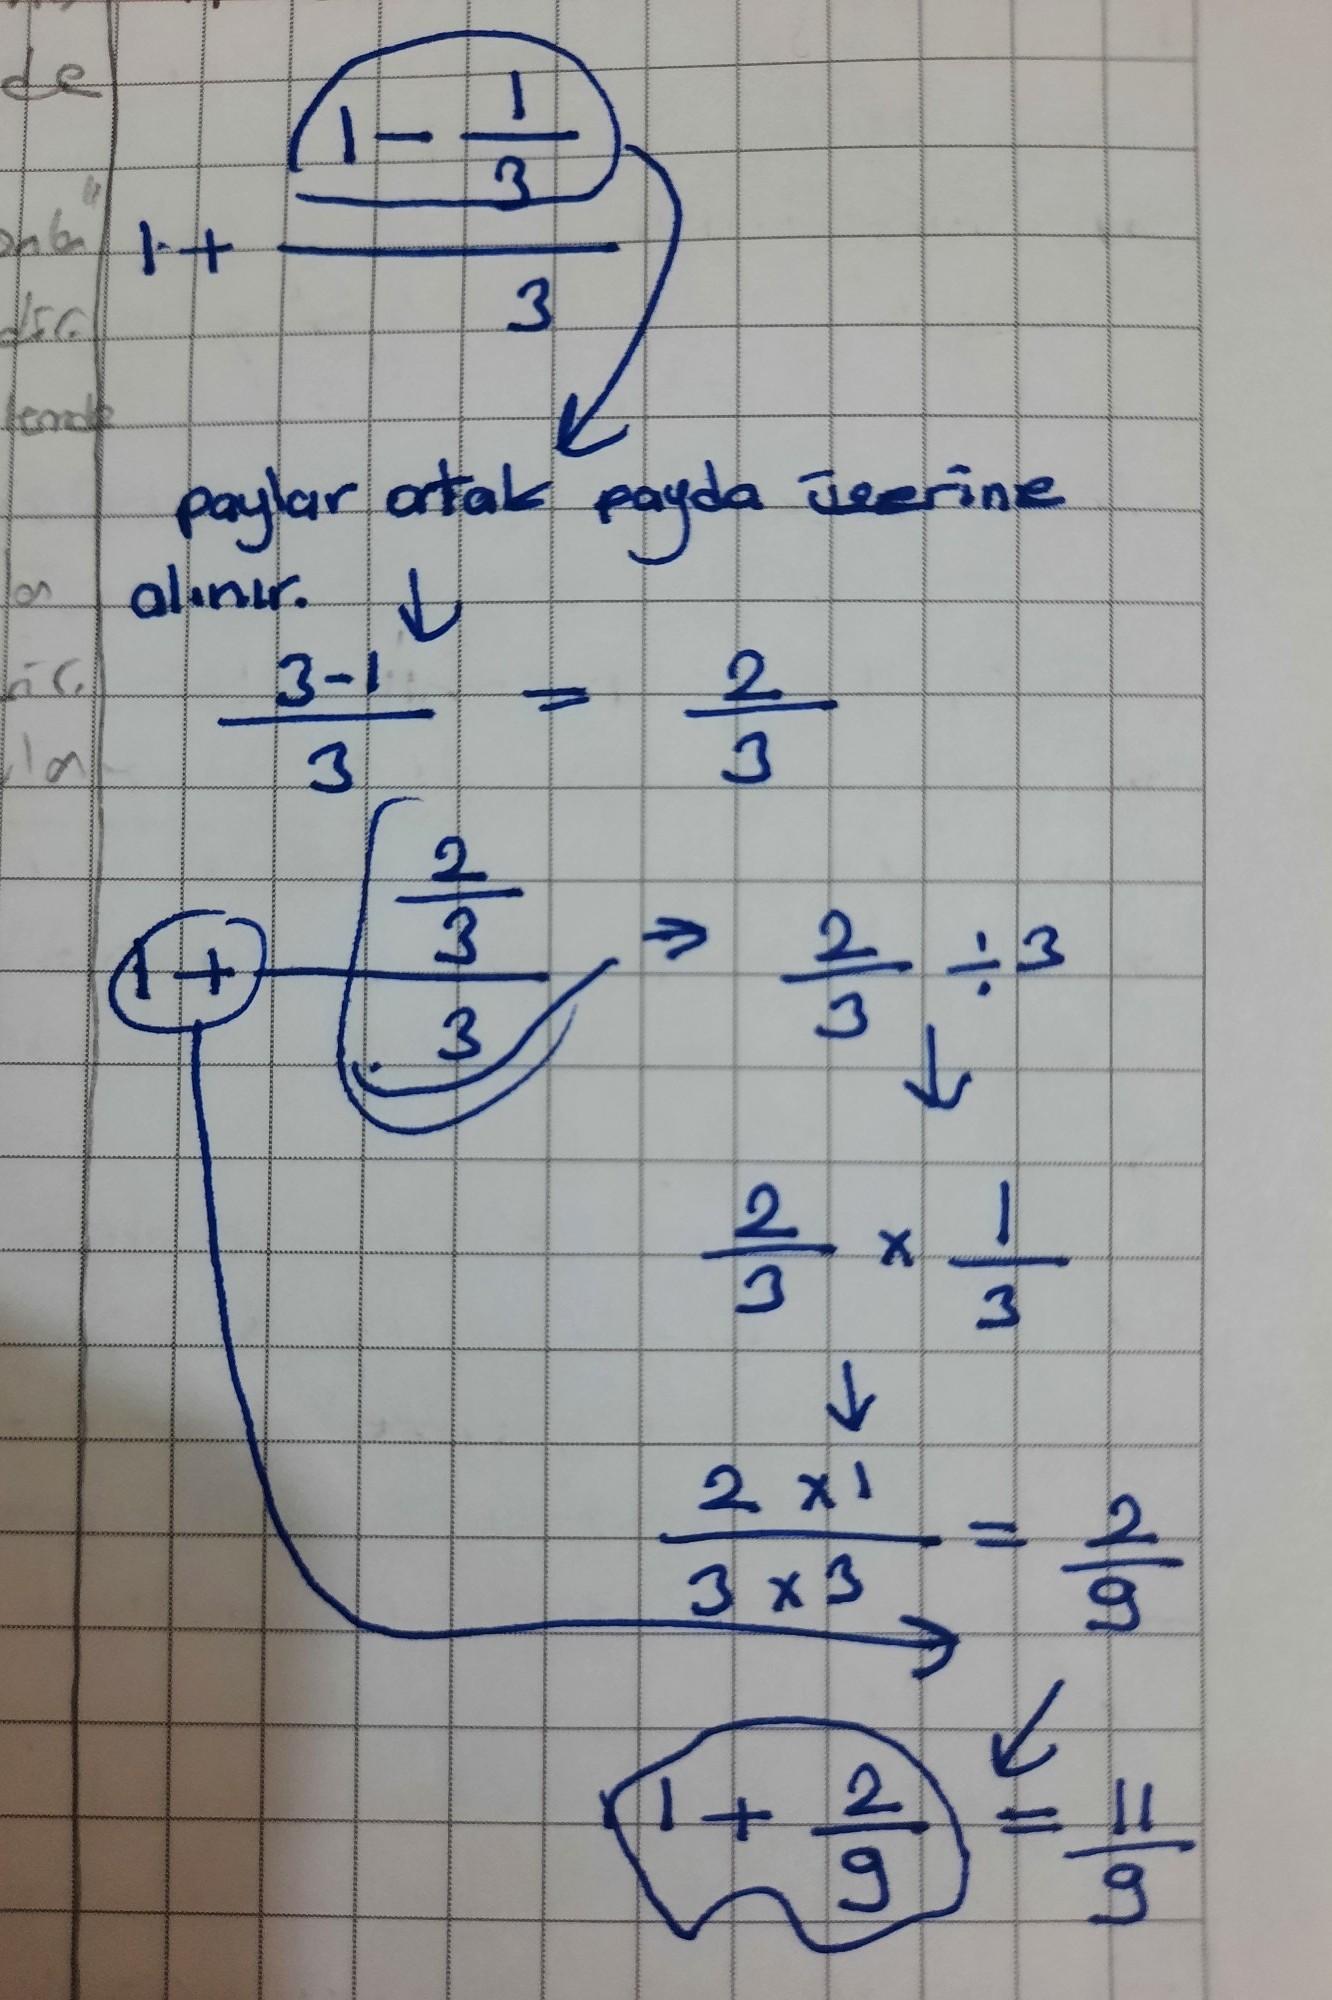 de
1 - 1/3
1 + ―
3
paylar ortak payda üzerine
alınır. ↓
3-1/3 = 2/3
1 + (2/3)/3 → 2/3 ÷ 3
↓
2/3 x 1/3
↓
2 x 1/3 x 3 = 2/9
1 + 2/9 = 11/9